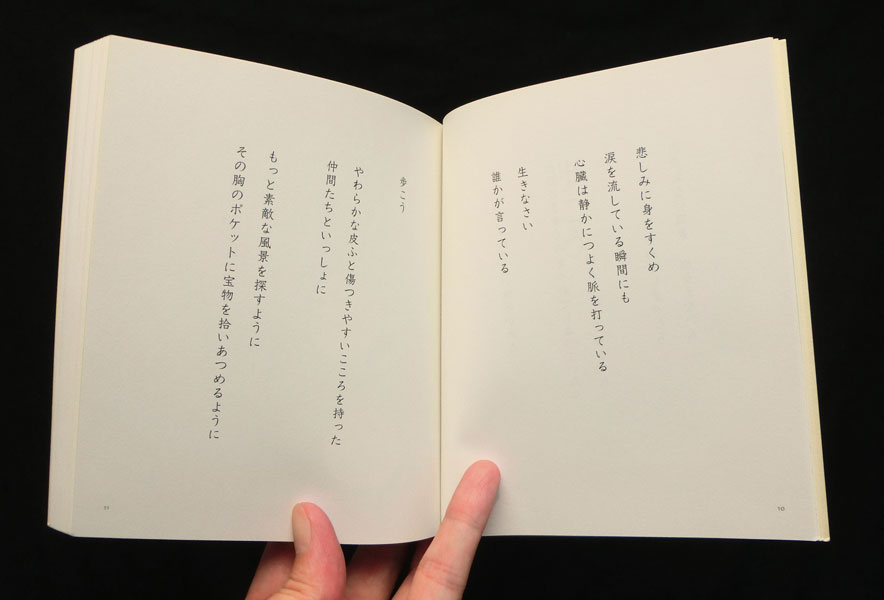 悲しみに身をすくめ
涙を流している瞬間にも
心臓は静かにつよく脈を打っている
生きなさい
誰かが言っている
10
歩こう
やわらかな皮ふと傷つきやすいこころを持った
仲間たちといっしょに
もっと素敵な風景を探すように
その胸のポケットに宝物を拾いあつめるように
11